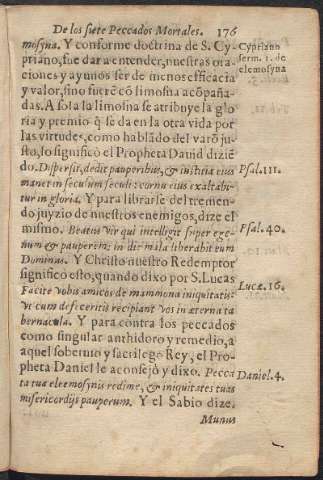 De los siete Peccados Mortales. 176
mosyna. Y conforme doctrina de S. Cy-
priano, fue dar a entender, nuestras ora-
ciones y ayunos ser de menos efficacia
y valor, sino fuerẽ cõ limosna acõpaña-
das. A sola la limosna se atribuye la glo
ria y premio q̃ se da en la otra vida por
las virtudes, como hablãdo del varõ jus-
to, lo significò el Propheta Dauid diziẽ
do. Dispersit, dedit pauperibus, & iustitia eius
manet in seculum seculi: cornu eius exaltabi-
tur in gloria. Y para librarse del tremen-
do juyzio de nuestros enemigos, dize el
mismo. Beatus vir qui intelligit super ege-
num & pauperem: in die mala liberabit eum
Dominus. Y Christo nuestro Redemptor
significò esto, quando dixo por S. Lucas
Facite vobis amicos de mammona iniquitatis:
vt cum defeceritis recipiant vos in æterna ta
bernacula. Y para contra los peccados
como singular anthidoro y remedio, a
aquel soberuio y sacrilego Rey, el Pro-
pheta Daniel le aconsejò y dixo. Pecca
ta tua eleemosynis redime, & iniquitates tuas
misericordijs pauperum. Y el Sabio dize.
Munus
Cypriano
serm. 1. de
elemosyna
Psal. 111.
Psal. 40.
Lucæ. 16.
Daniel. 4.